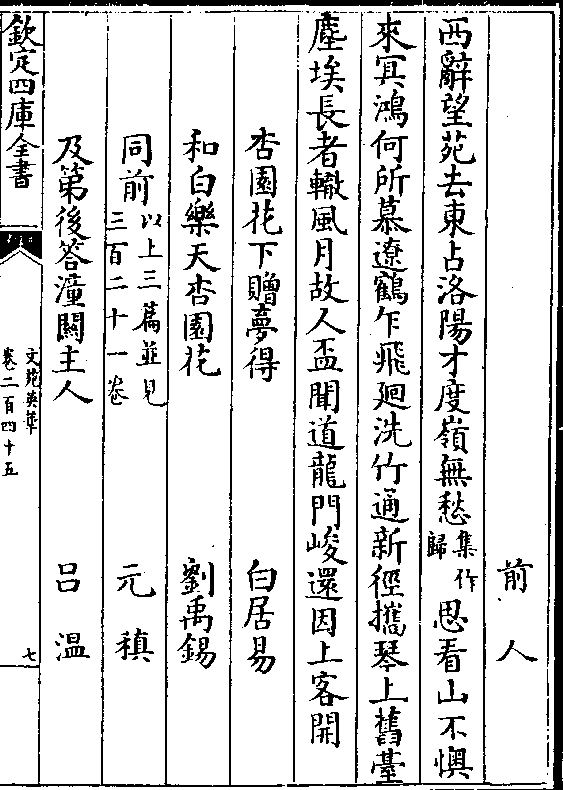 前人
西辭望苑去東占洛陽才度嶺無愁集作歸思看山不懊
來冥鴻何所慕遼鶴乍飛廻洗竹通新徑攜琴上舊臺
塵埃長者轍風月故人盃聞道龍門峻還因上客開
杏園花下贈夢得 白居易
和白樂天杏園花 劉禹錫
同前以上三篇並見三百二十一卷 元稹
及第後答潼關主人 呂溫
欽定四庫全書
文苑英華
卷二百四十五
七